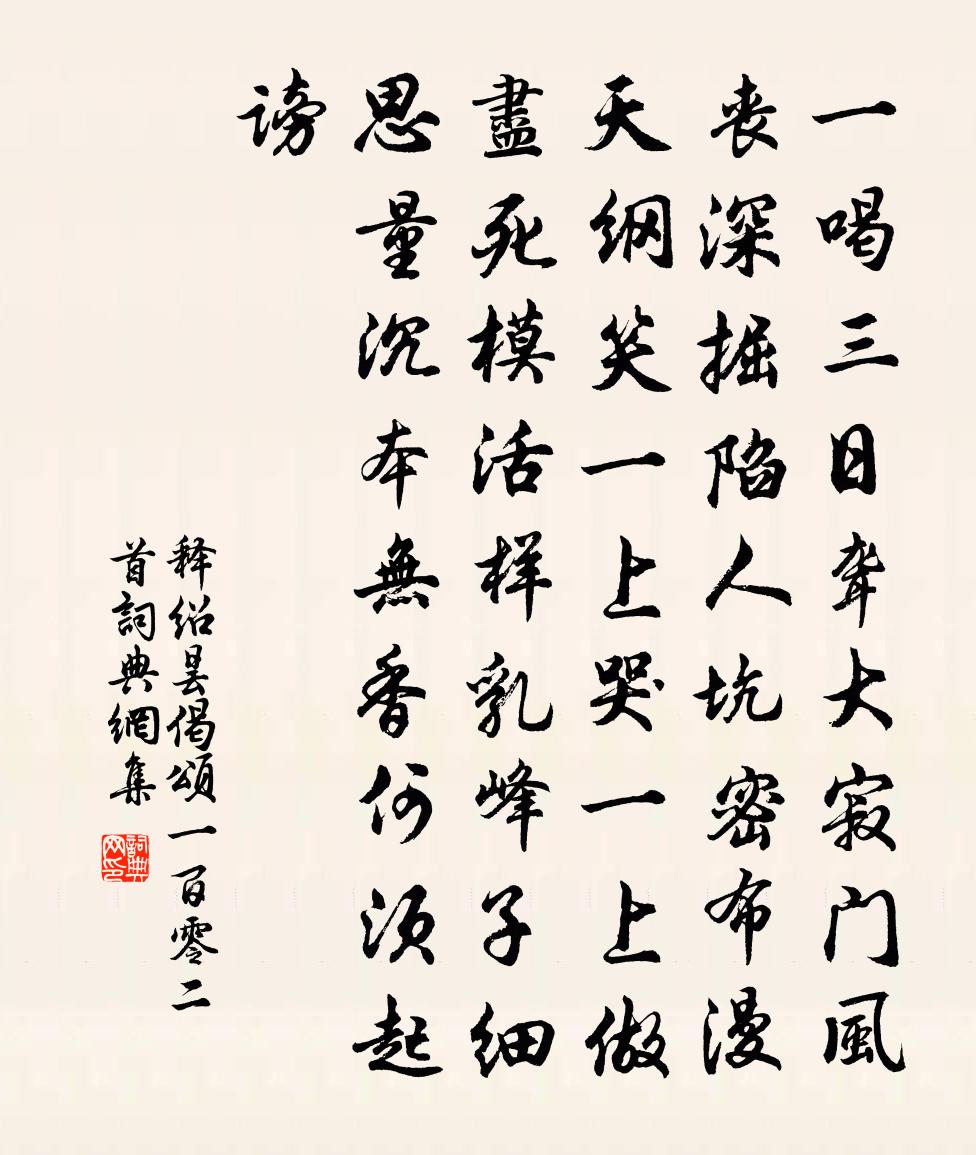 一喝三日聋大寂门風
丧深掘陷人坑密布漫
天網笑一上哭一上做
盡死模活样乳峰子细
思量沉本無香何须起
谤
释绍昙偈頌一百零二
首詞典網集
詞典网印